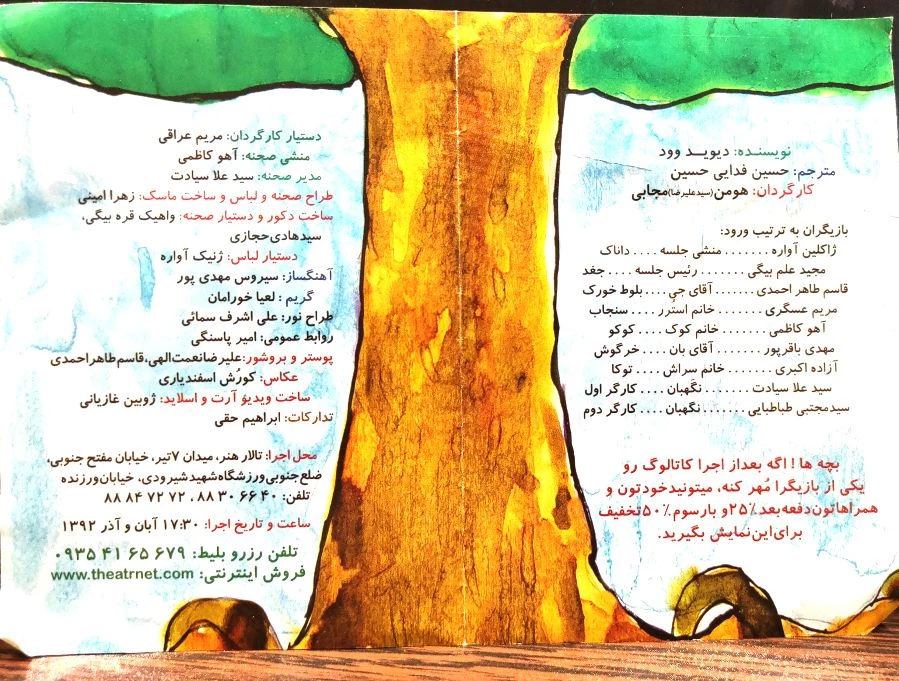 نویسنده: دیوید وود
مترجم: حسین فدایی حسین
کارگردان: هومن(سیدعلیرضا)مجابی
بازیگران به ترتیب ورود:
ژاکلین آواره ....... منشی جلسه .... داناک
مجید علم بیگی ....... رئیس جلسه .... جغد
قاسم طاهر احمدی ....... آقای جی .... بلوط خورک
مریم عسگری ....... خانم استرر .... سنجاب
آهو کاظمی ....... خانم کوک .... کوکو
مهدی باقرپور ....... آقای بان .... خرگوش
آزاده اکبری .... خانم سراش .... توکا
سید علا سیادت ....... نگهبان .... کارگر اول
سیدمجتبی طباطبایی ....... نگهبان .... کارگر دوم
بچه ها ! اگه بعداز اجرا کاتالوگ رو
یکی از بازیگرا مُهر کنه، میتونیدخودتون و
همراهاتون‌دفعه‌بعد ۲۵٪و بارسوم ۵۰٪تخفیف
برای‌این‌نمایش بگیرید.
دستیار کارگردان: مریم عراقی
منشی صحنه: آهو کاظمی
مدیر صحنه: سید علا سیادت
طراح صحنه و لباس و ساخت ماسک: زهرا امینی
ساخت دکور و دستیار صحنه: واهیک قره بیگی،
سیدهادی‌حجازی
دستیار لباس: ژنیک آواره
آهنگساز: سیروس مهدی پور
گریم : لعیا خورامان
طراح نور: علی اشرف سمائی
روابط عمومی: امیر پاسنگی
پوستر و بروشور:علیرضانعمت‌الهی،قاسم‌طاهراحمدی
عکاس: کورُش اسفندیاری
ساخت ویدیو آرت و اسلاید: ژوبین غازیانی
تدارکات: ابراهیم حقی
محل اجرا: تالار هنر، میدان ۷تیر، خیابان مفتح جنوبی،
ضلع‌جنوبی‌ورزشگاه‌شهیدشیرودی، خیابان‌ورزنده
تلفن: ۴۰ ۶۶ ۳۰ ۸۸، ۷۲ ۷۲ ۸۴ ۸۸
ساعت و تاریخ اجرا: ۱۷:۳۰ آبان و آذر ۱۳۹۲
تلفن رزرو بلیط: ۶۷۹ ۶۵ ۴۱ ۰۹۳۵
فروش اینترنتی: www.theatrnet.com